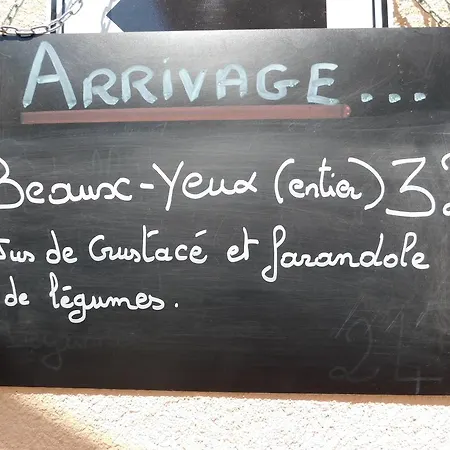 ARRIVAGE...
Beaux-Yeux (entier) 3
Jus de Crustacé et farandole
de légumes.